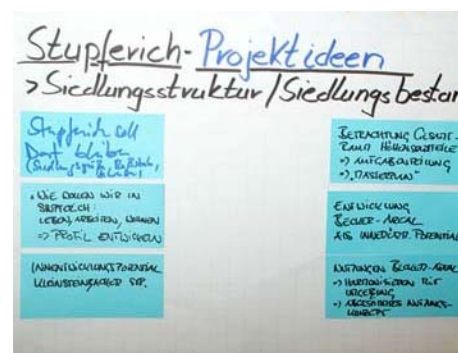 Stupferich - Projektideen
> Siedlungsstruktur / Siedlungsbestan
Stupferich soll
Dorf bleiben
(Siedlungsgröße,
• WIE WOLLEN WIR IN
STUPFERICH
LEBEN, ARBEITEN, WOHNEN
=> PROFIL ENTWICKELN
INNENTWICKLUNGSPOTENTIAL
KLEINSTEINBACHER STR.
BETRACHTUNG GESAMT-
RAUM HÖHENSTADTTEILE
=> AUFGABENTEILUNG
=> "MASTERPLAN"
ENTWICKLUNG
BECKER-AREAL
ALS INNERÖRTL. POTENTIAL
NUTZUNGEN BECKER-AREAL
=> HARMONISIEREN MIT
UMGEBUNG
=> NUTZUNGS-
KONZEPT